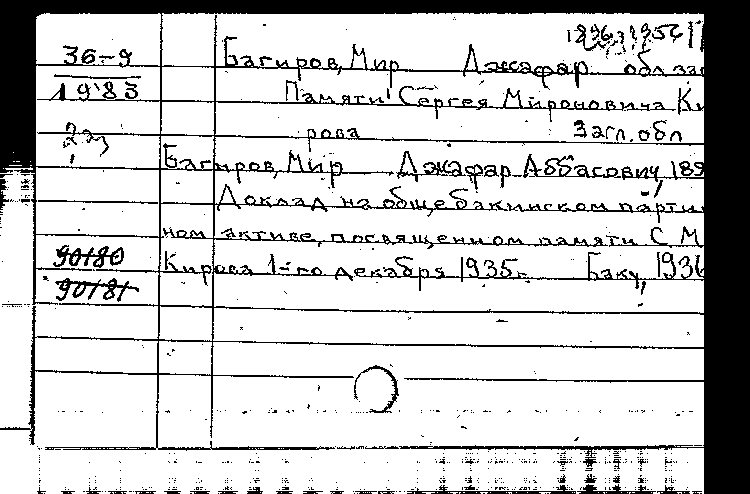 1896-1956
36-9
1983
2аз
Багиров, Мир Джафар обл заг
Памяти Сергея Мироновича Ки
рова Загл. обл
Багиров, Мир Джафар Аббасович, 189
Доклад на общебакинском парти
ном активе, посвященном памяти С М
Кирова 1-го декабря 1935г. Баку, 1936
90180
90181